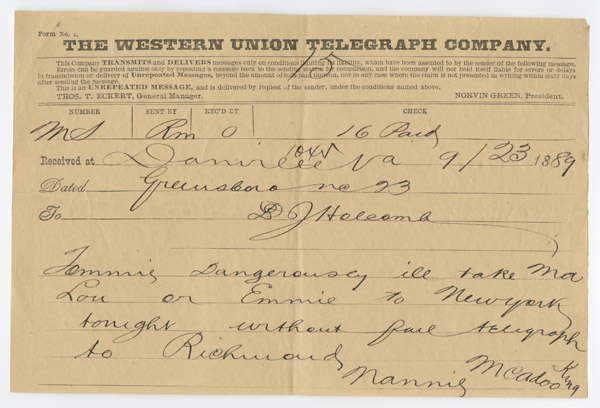 Form No. 1.
THE WESTERN UNION TELEGRAPH COMPANY.
This Company TRANSMITS and DELIVERS messages only on conditions limiting its liability, which have been assented to by the sender of the following message.
Errors can be guarded against only by repeating a message back to the sending station for comparison, and the company will not hold itself liable for errors or delays
in transmission or delivery of Unrepeated Messages, beyond the amount of tolls paid thereon, nor in any case where the claim is not presented in writing within sixty days
after sending the message.
This is an UNREPEATED MESSAGE, and is delivered by request of the sender, under the conditions named above.
THOS. T. ECKERT, General Manager. NORVIN GREEN, President.
NUMBER SENT BY REC'D BY CHECK
MS Rm O 16 Paid
Received at Danville Va 9/23 1889
Dated Greensboro NC 23
To J Holcomb
Tommie Dangerously ill take Ma
Lou or Emmie to New York
tonight without fail telegraph
to Richmond
Nannie McAdoo King